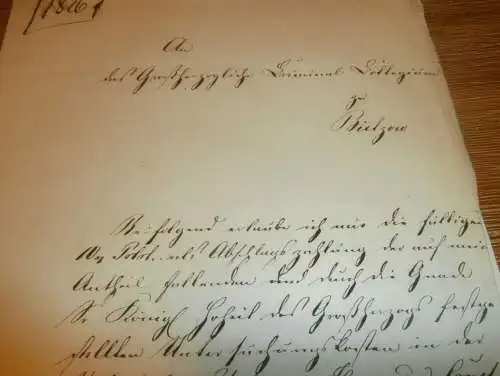 An
das Großherzogliche Criminal Collegium
zu
Bützow
Beifolgend erlaube ich mir die fälligen
10 als Abschlagszahlung der auf mein
Antheil fallenden und durch die Gnade
Sr Königl Hoheit des Großherzogs festge
stellten Untersuchungskosten in der